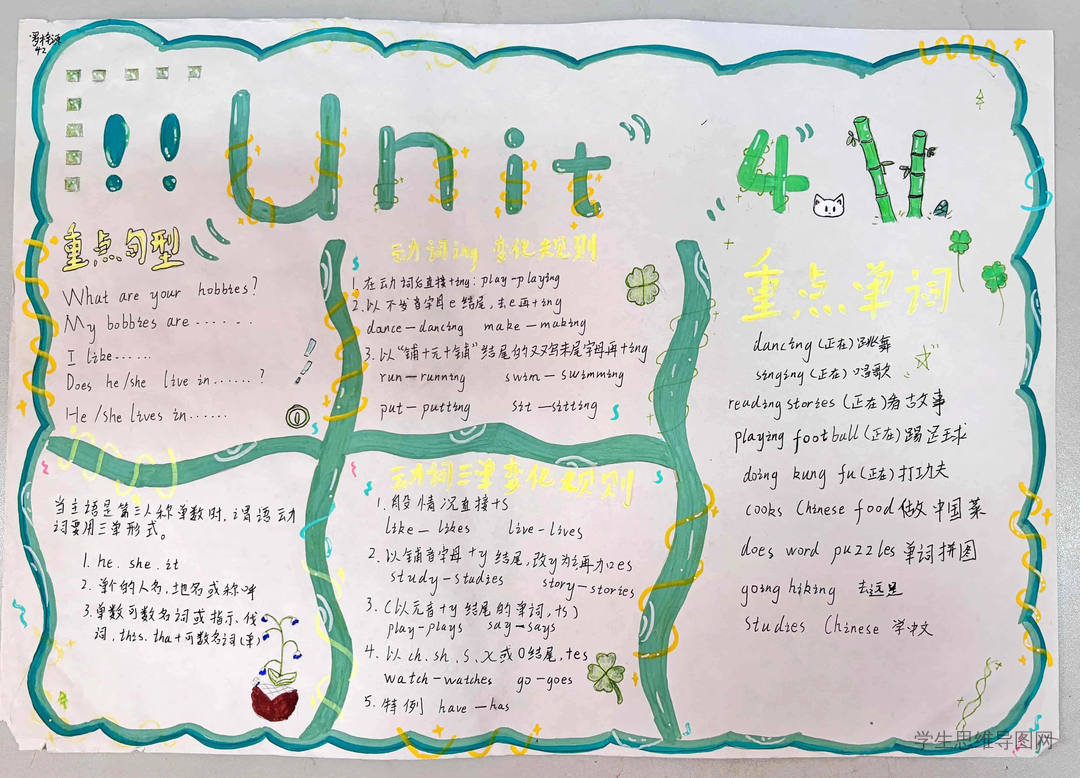 42
!! Unit 4
重点句型
What are your hobbies?
My bobbies are......
I like......
Does he/she live in......?
He/she lives in......
动词ing 变化规则
1. 在动词后直接+ing: play—playing
2. 以不发音字母e结尾,去e再+ing
dance—dancing make—making
3. 以“辅+元+辅”结尾的双写末尾字母再+ing
run—running swim—swimming
put—putting sit—sitting
重点单词
dancing (正在)跳舞
singing (正在)唱歌
reading stories (正在)看故事
playing football (正在)踢足球
doing kung fu (正在)打功夫
cooks Chinese food 做中国菜
does word puzzles 单词拼图
going hiking 去远足
studies Chinese 学中文
当主语是第三人称单数时,谓语动
词要用三单形式。
1. he. she. it
2. 单个的人名,地名或称呼
3. 单数可数名词或指示代
词, this. that+可数名词(单)
动词三单变化规则
1. 般情况直接+s
like—likes live-lives
2. 以辅音字母+y结尾,改y为i再加es
study-studies story-stories
3. (以元音+y结尾的单词,+s)
play-plays say-says
4. 以ch. sh. s. x或O结尾,+es
watch-watches go-goes
5. 特例 have—has
学生思维导图网